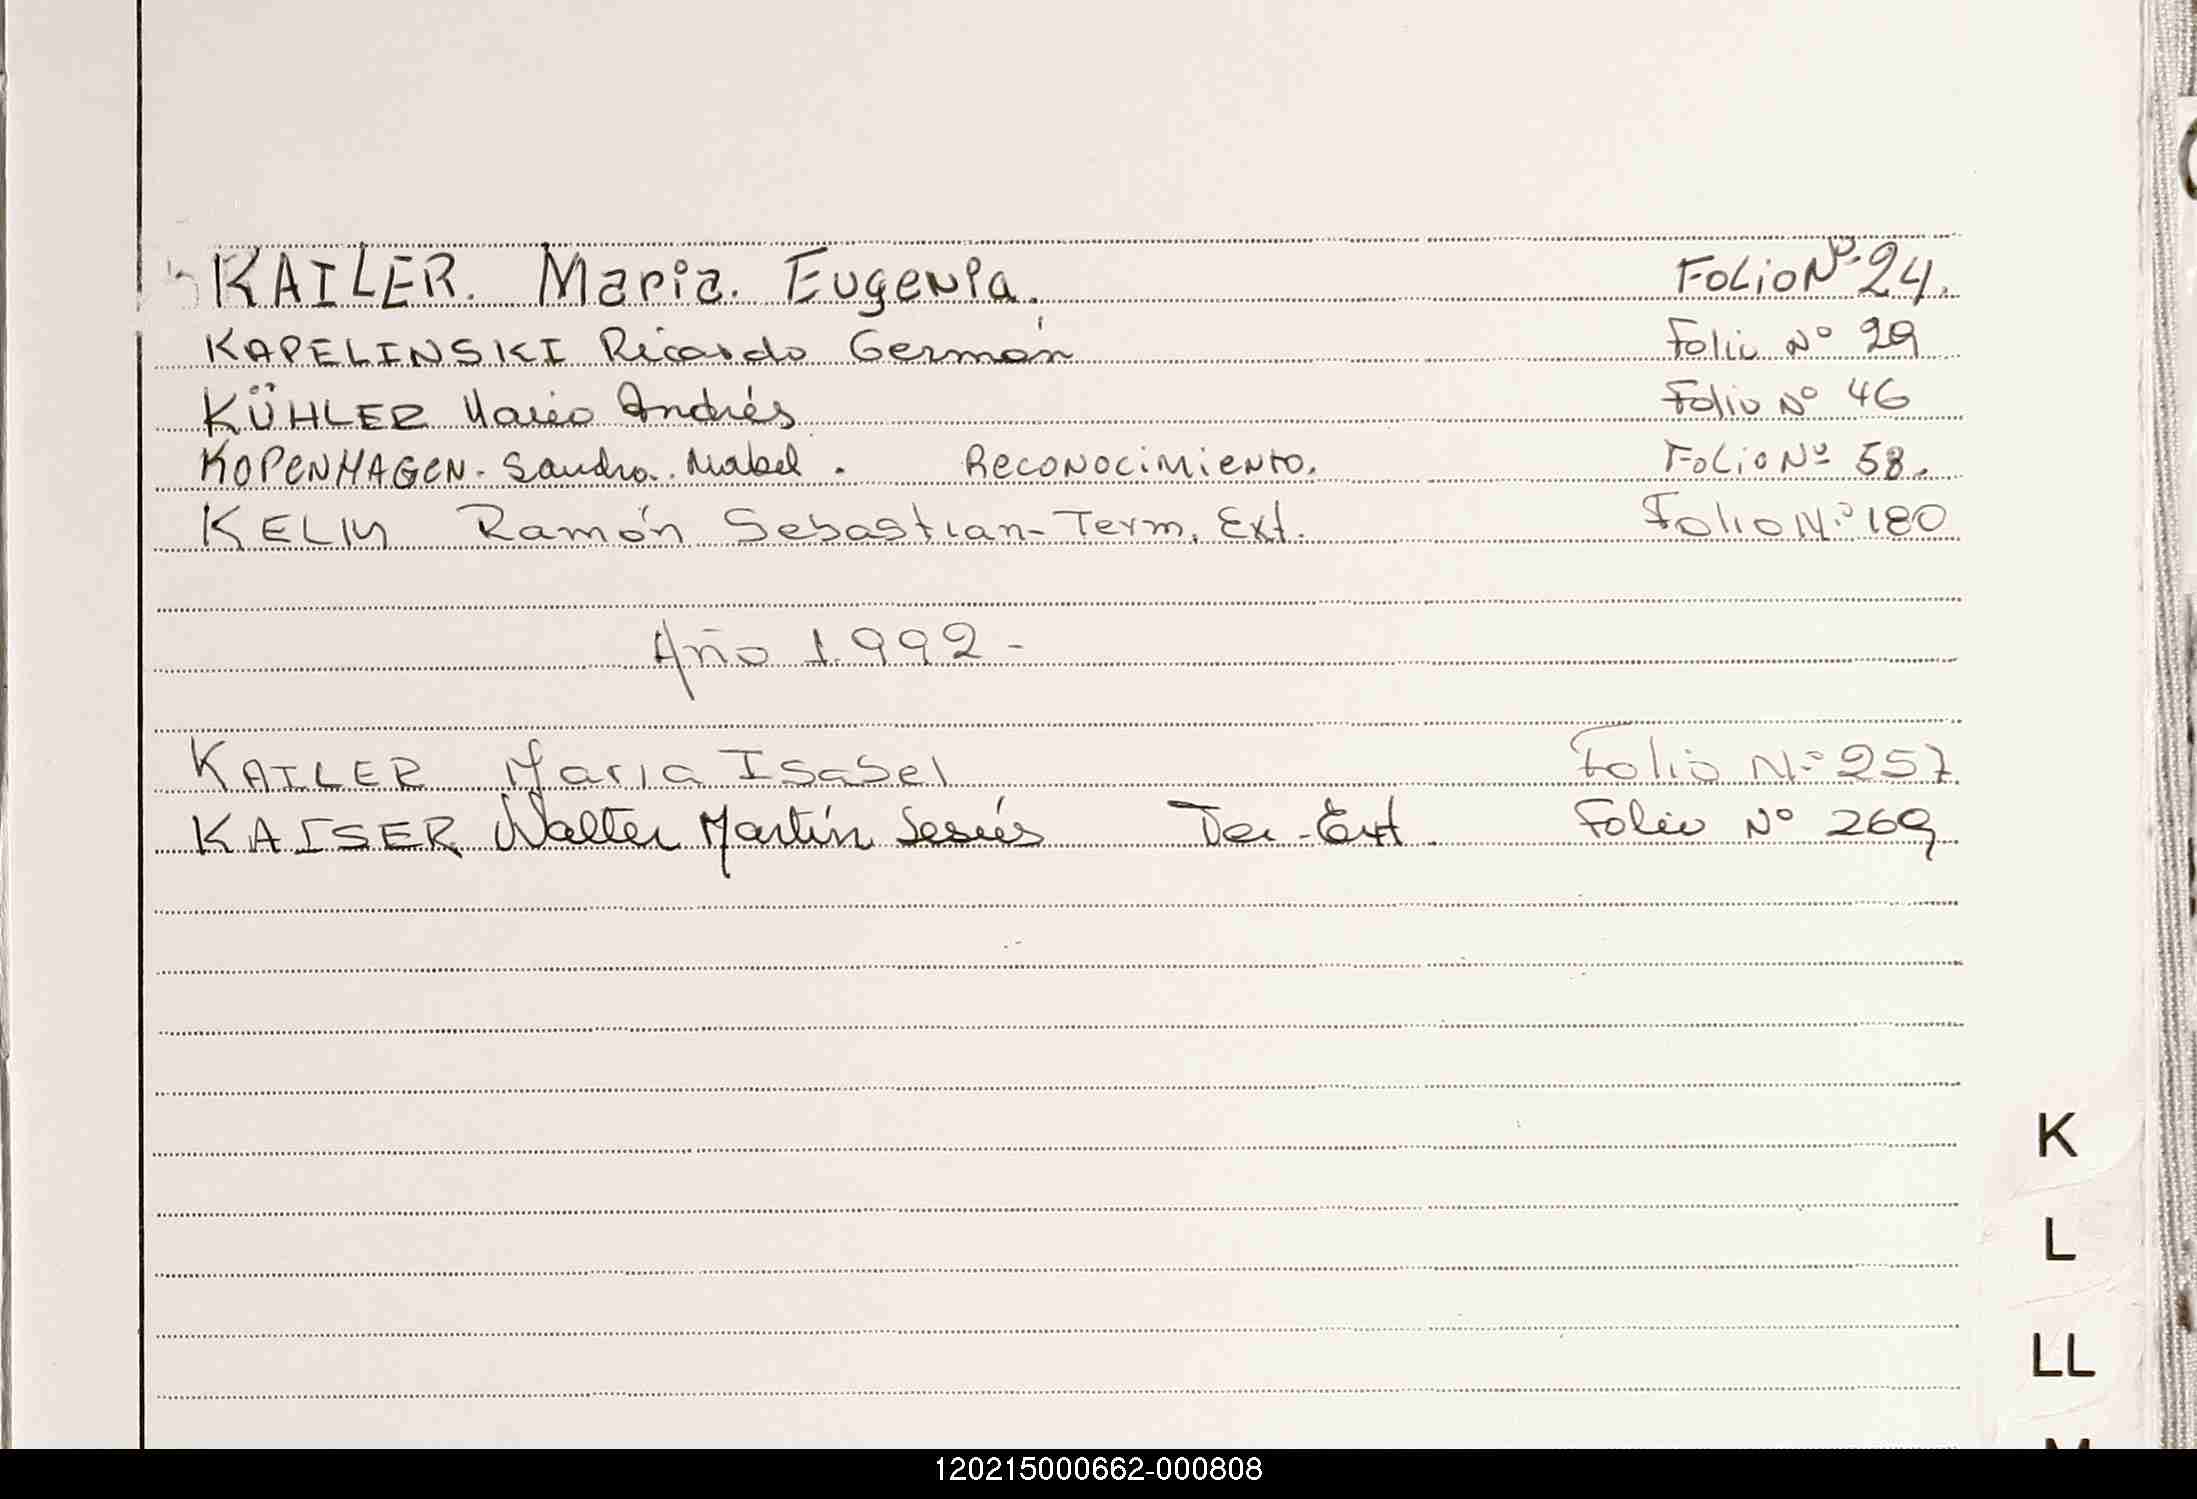 KAILER. Maria. Eugenia. Folio Nº 24.
KAPELINSKI Ricardo Germán Folio Nº 29
KÜHLER Mario Andrés Folio Nº 46
KOPENHAGEN. Sandra. Mabel. Reconocimiento. Folio Nº 58.
KELM Ramón Sebastian - Term. Ext. Folio Nº 180
Año 1.992 -
KAILER Maria Isabel Folio Nº 257
KAISER Walter Martín Jesús Ter - Ext. Folio Nº 269
K
L
LL
M
120215000662-000808